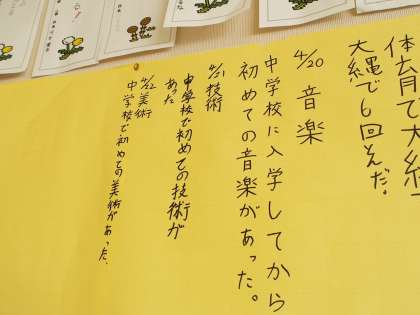 体育で大縄
大縄で6回とんだ。
4/20 音楽
中学校に入学してから
初めての音楽があった。
4/21 技術
中学校で初めての技術が
あった
4/22 美術
中学校で初めての美術があった。